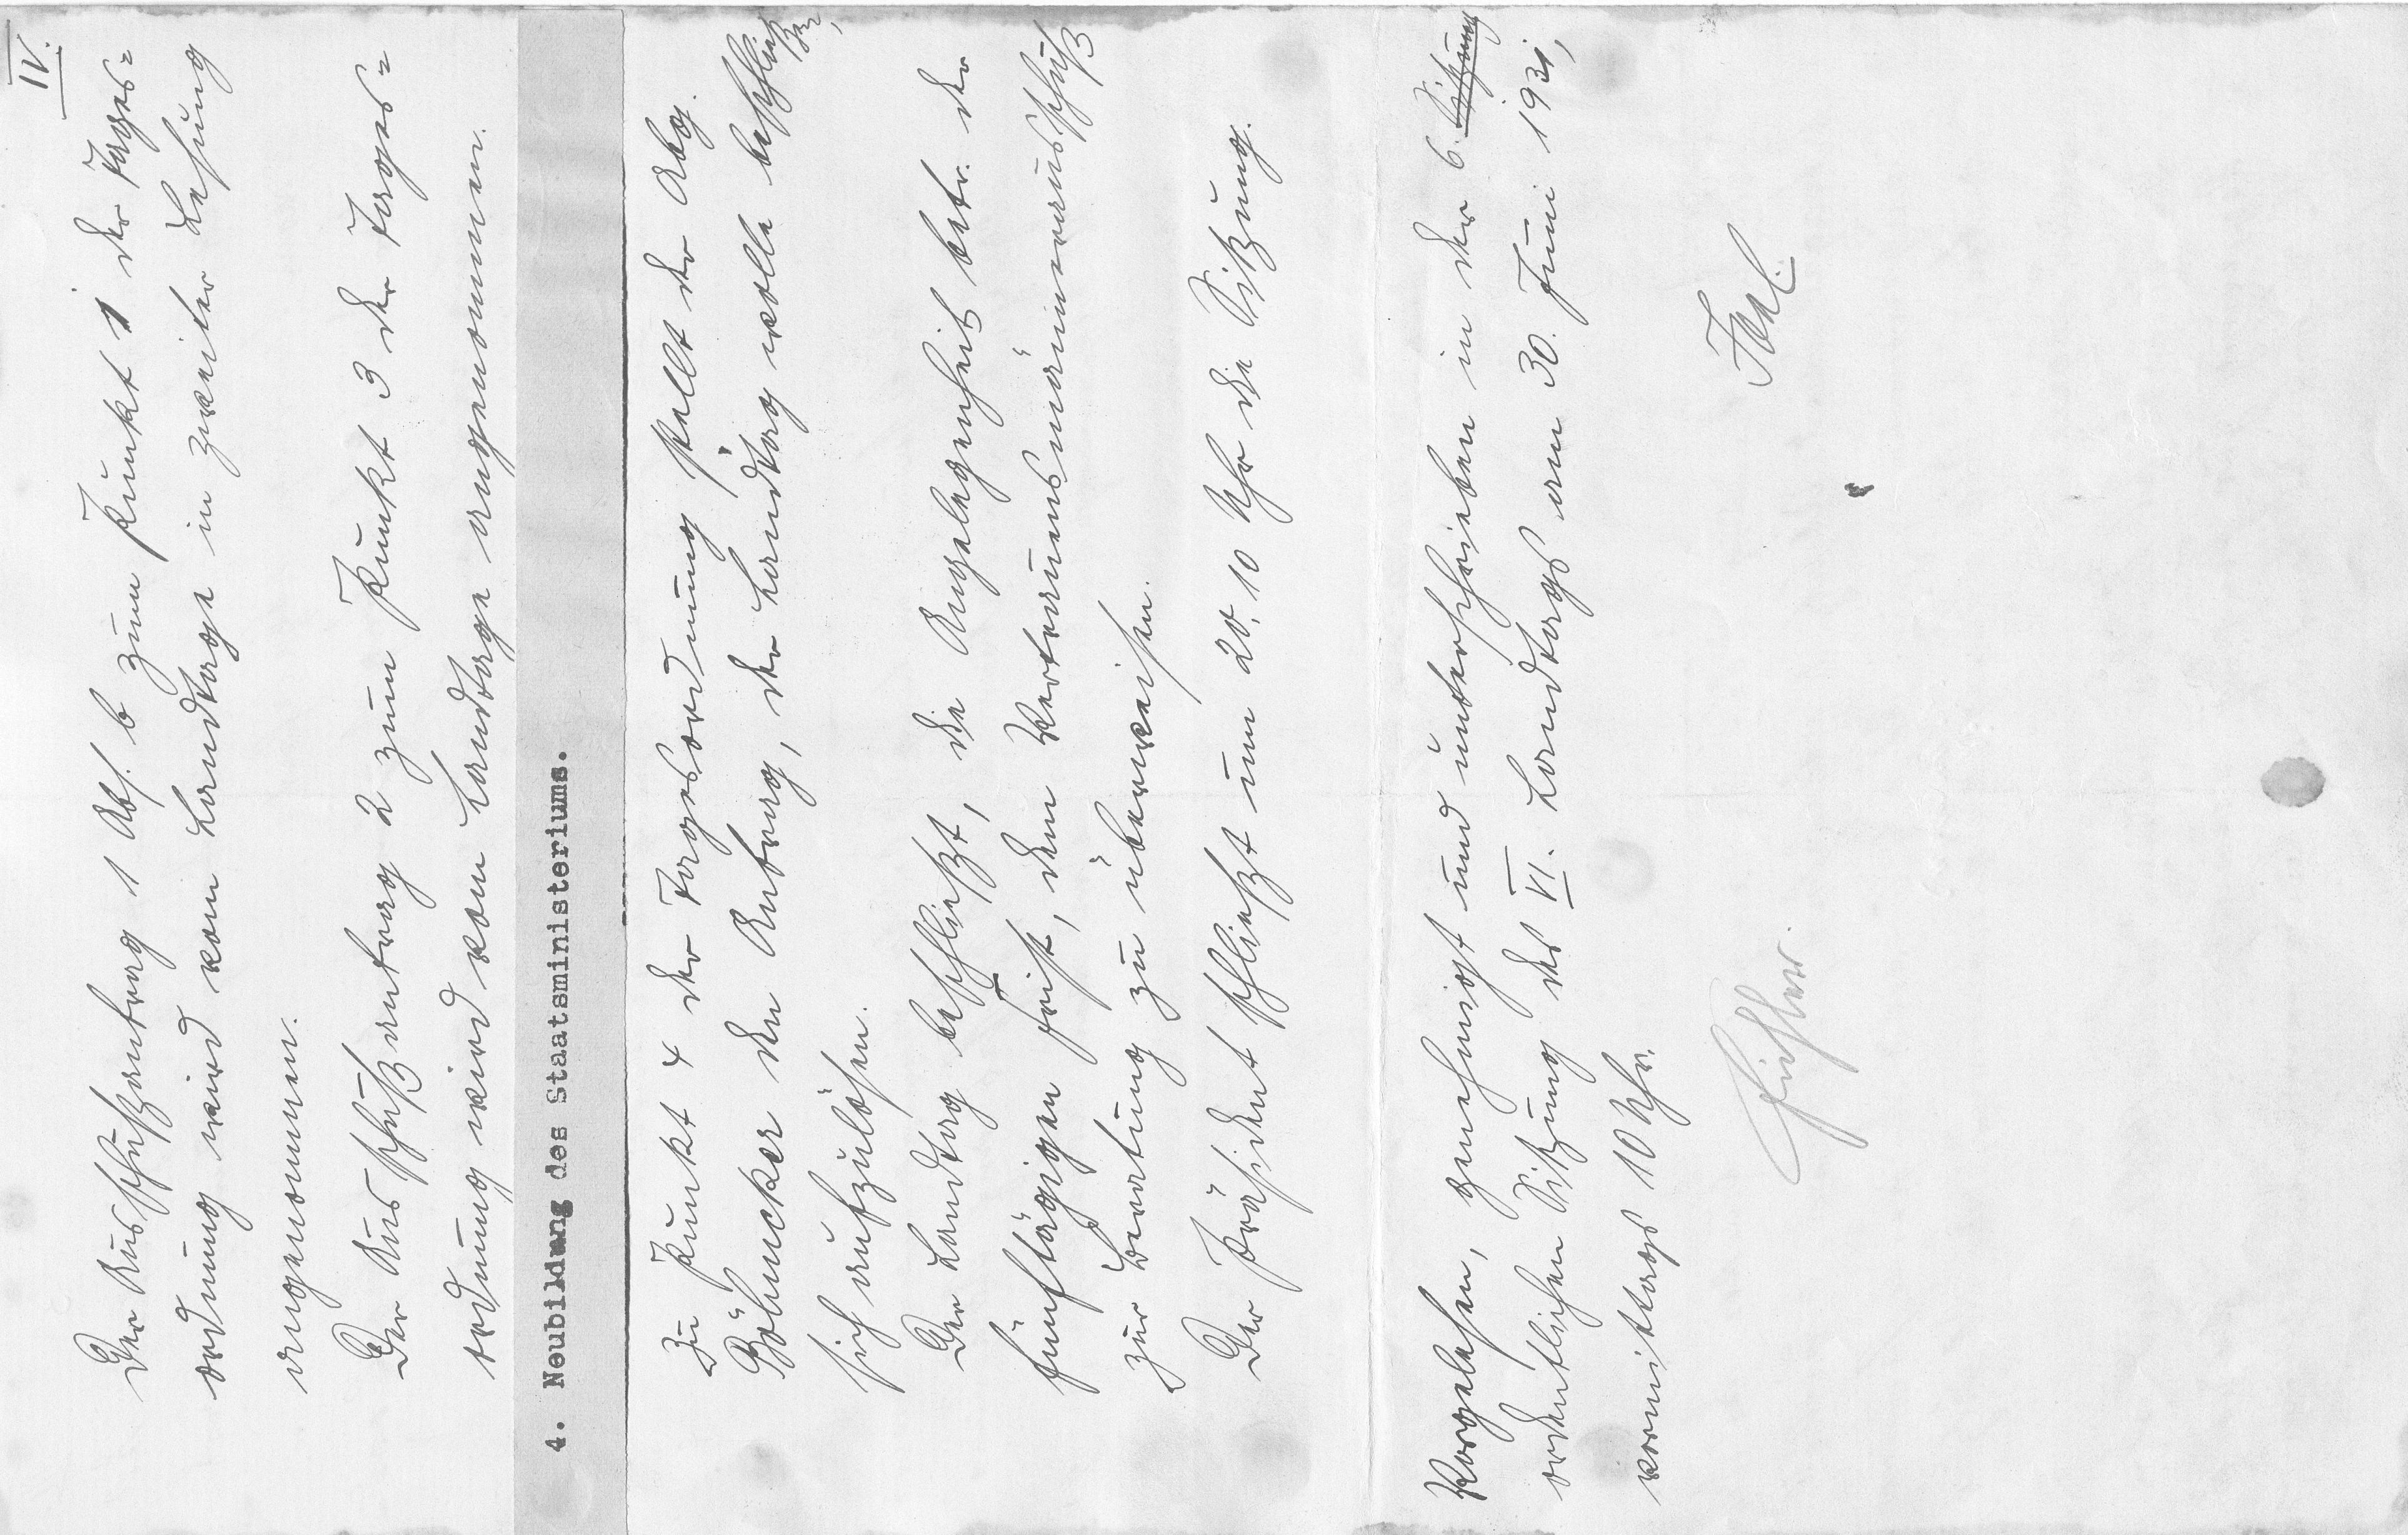 IV.
Der Ausschußantrag 1 Abs. b zum Punkt 1 der Tages=
ordnung wird vom Landtage in zweiter Lesung
angenommen.
Der Ausschußantrag 2 zum Punkt 3 der Tages=
ordnung wird vom Landtage angenommen.
4. Neubildung des Staatsministeriums.
Zu Punkt 4 der Tagesordnung stellt der Abg.
Bölucker den Antrag, der Landtag wolle beschließen,
sich aufzulösen.
Der Landtag beschließt, die Angelegenheit betr. der
fünftägigen Frist, dem Vertrauensmännerausschuß
zur Beratung zu überweisen.
Der Präsident schließt um 20.10 Uhr die Sitzung.
Vorgelesen, genehmigt und unterschrieben in der 6. Sitzung
ordentlichen Sitzung des VI. Landtags am 30. Juni 1931,
vormittags 10 Uhr.